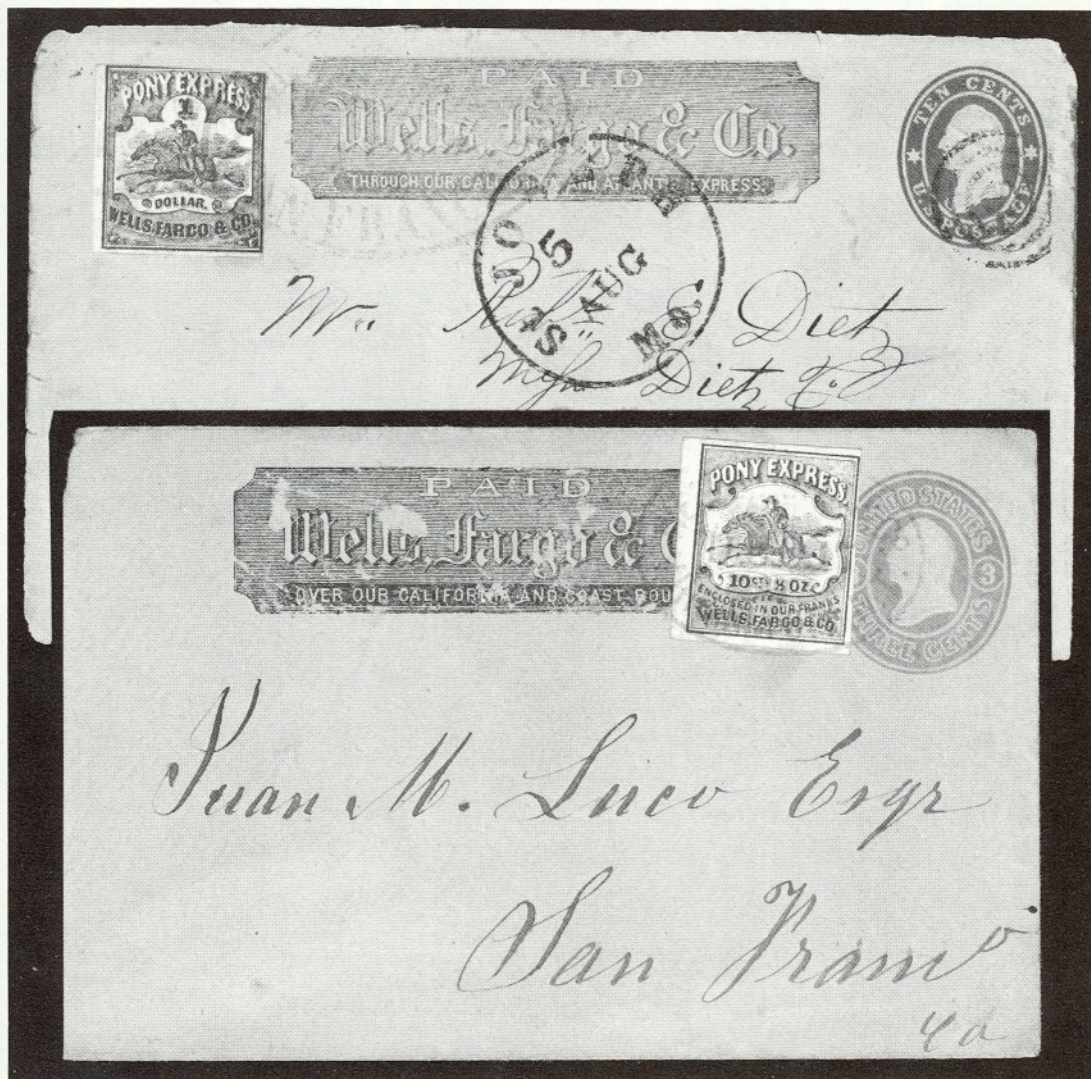 PONY EXPRESS
1
DOLLAR.
WELLS, FARGO & CO.
PAID
Wells, Fargo & Co.
THROUGH OUR CALIFORNIA AND ATLANTIC EXPRESS.
TEN CENTS
U.S. POSTAGE
St JOSEPH Mo.
5
AUG
Mr. Robt. E. Dietz
Dietz
PAID
Wells, Fargo & C
OVER OUR CALIFORNIA AND COAST ROU
PONY EXPRESS.
10 CTS ½ OZ.
ENCLOSED IN OUR FRANKS
WELLS, FARGO & CO.
UNITED STATES
3
THREE CENTS
Juan M. Luco Esqr
San Franco
Ca